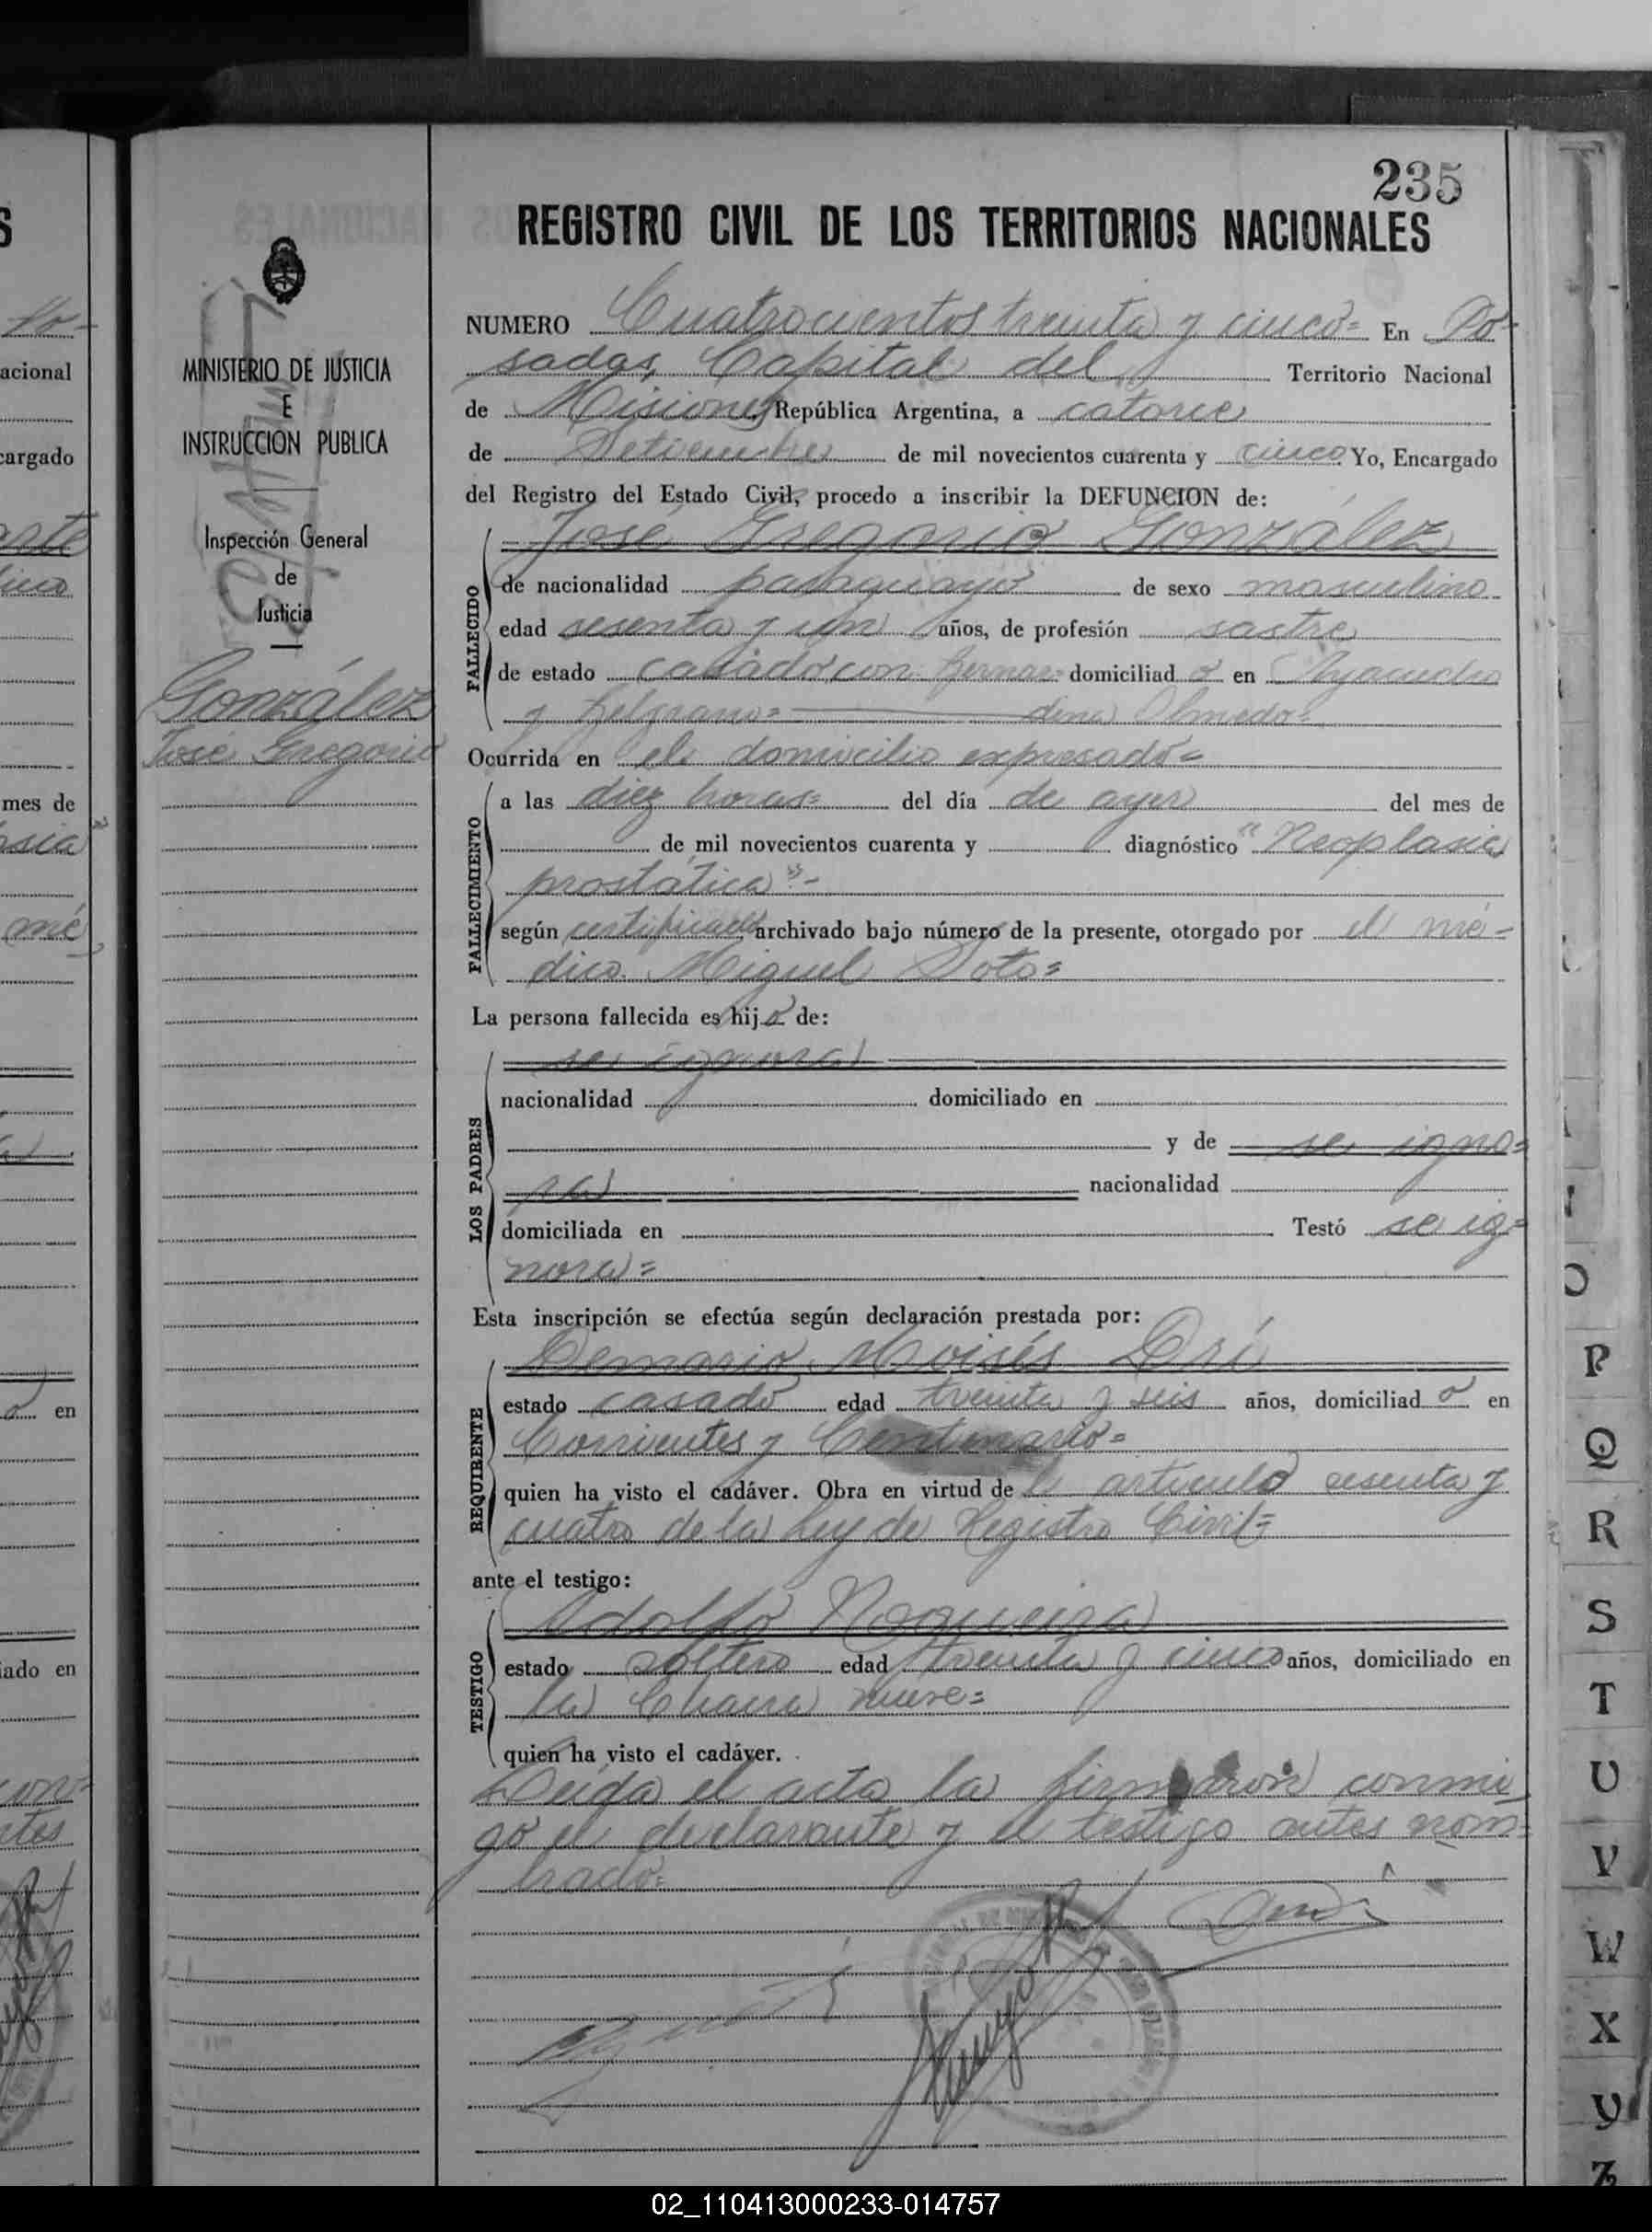 235
REGISTRO CIVIL DE LOS TERRITORIOS NACIONALES
MINISTERIO DE JUSTICIA
E
INSTRUCCION PUBLICA
Inspección General
de
Justicia
González
José Gregorio
NUMERO Cuatrocientos treinta y cinco= En Po-
sadas, Capital del Territorio Nacional
de Misiones, República Argentina, a catorce
de Setiembre de mil novecientos cuarenta y cinco Yo, Encargado
del Registro del Estado Civil, procedo a inscribir la DEFUNCION de:
FALLECIDO
José Gregorio González
de nacionalidad paraguayo de sexo masculino
edad sesenta y un años, de profesión sastre
de estado casado con Hernar= domiciliado en Ayacucho
y Belgrano= dina Olmedo=
Ocurrida en el domicilio expresado=
FALLECIMIENTO
a las diez horas= del día de ayer del mes de
de mil novecientos cuarenta y diagnóstico "Neoplasia
prostática"-
según certificado archivado bajo número de la presente, otorgado por el mé-
dico Miguel Soto=
La persona fallecida es hijo de:
LOS PADRES
se ignora
nacionalidad domiciliado en
y de se igno=
ra nacionalidad
domiciliada en Testó se ig=
nora=
Esta inscripción se efectúa según declaración prestada por:
REQUIRENTE
Moisés Drí
estado casado edad treinta y seis años, domiciliado en
Corrientes y Centenario=
quien ha visto el cadáver. Obra en virtud del artículo sesenta y
cuatro de la Ley de Registro Civil=
ante el testigo:
TESTIGO
Adolfo Nogueira
estado soltero edad treinta y cinco años, domiciliado en
la Chacra nueve=
quien ha visto el cadáver.
Leída el acta la firmaron conmi-
go el declarante y el testigo antes nom=
brado=
acional
cargado
mes de
mé
en
iado en
O
P
Q
R
S
T
U
V
W
X
Y
Z
02_110413000233-014757